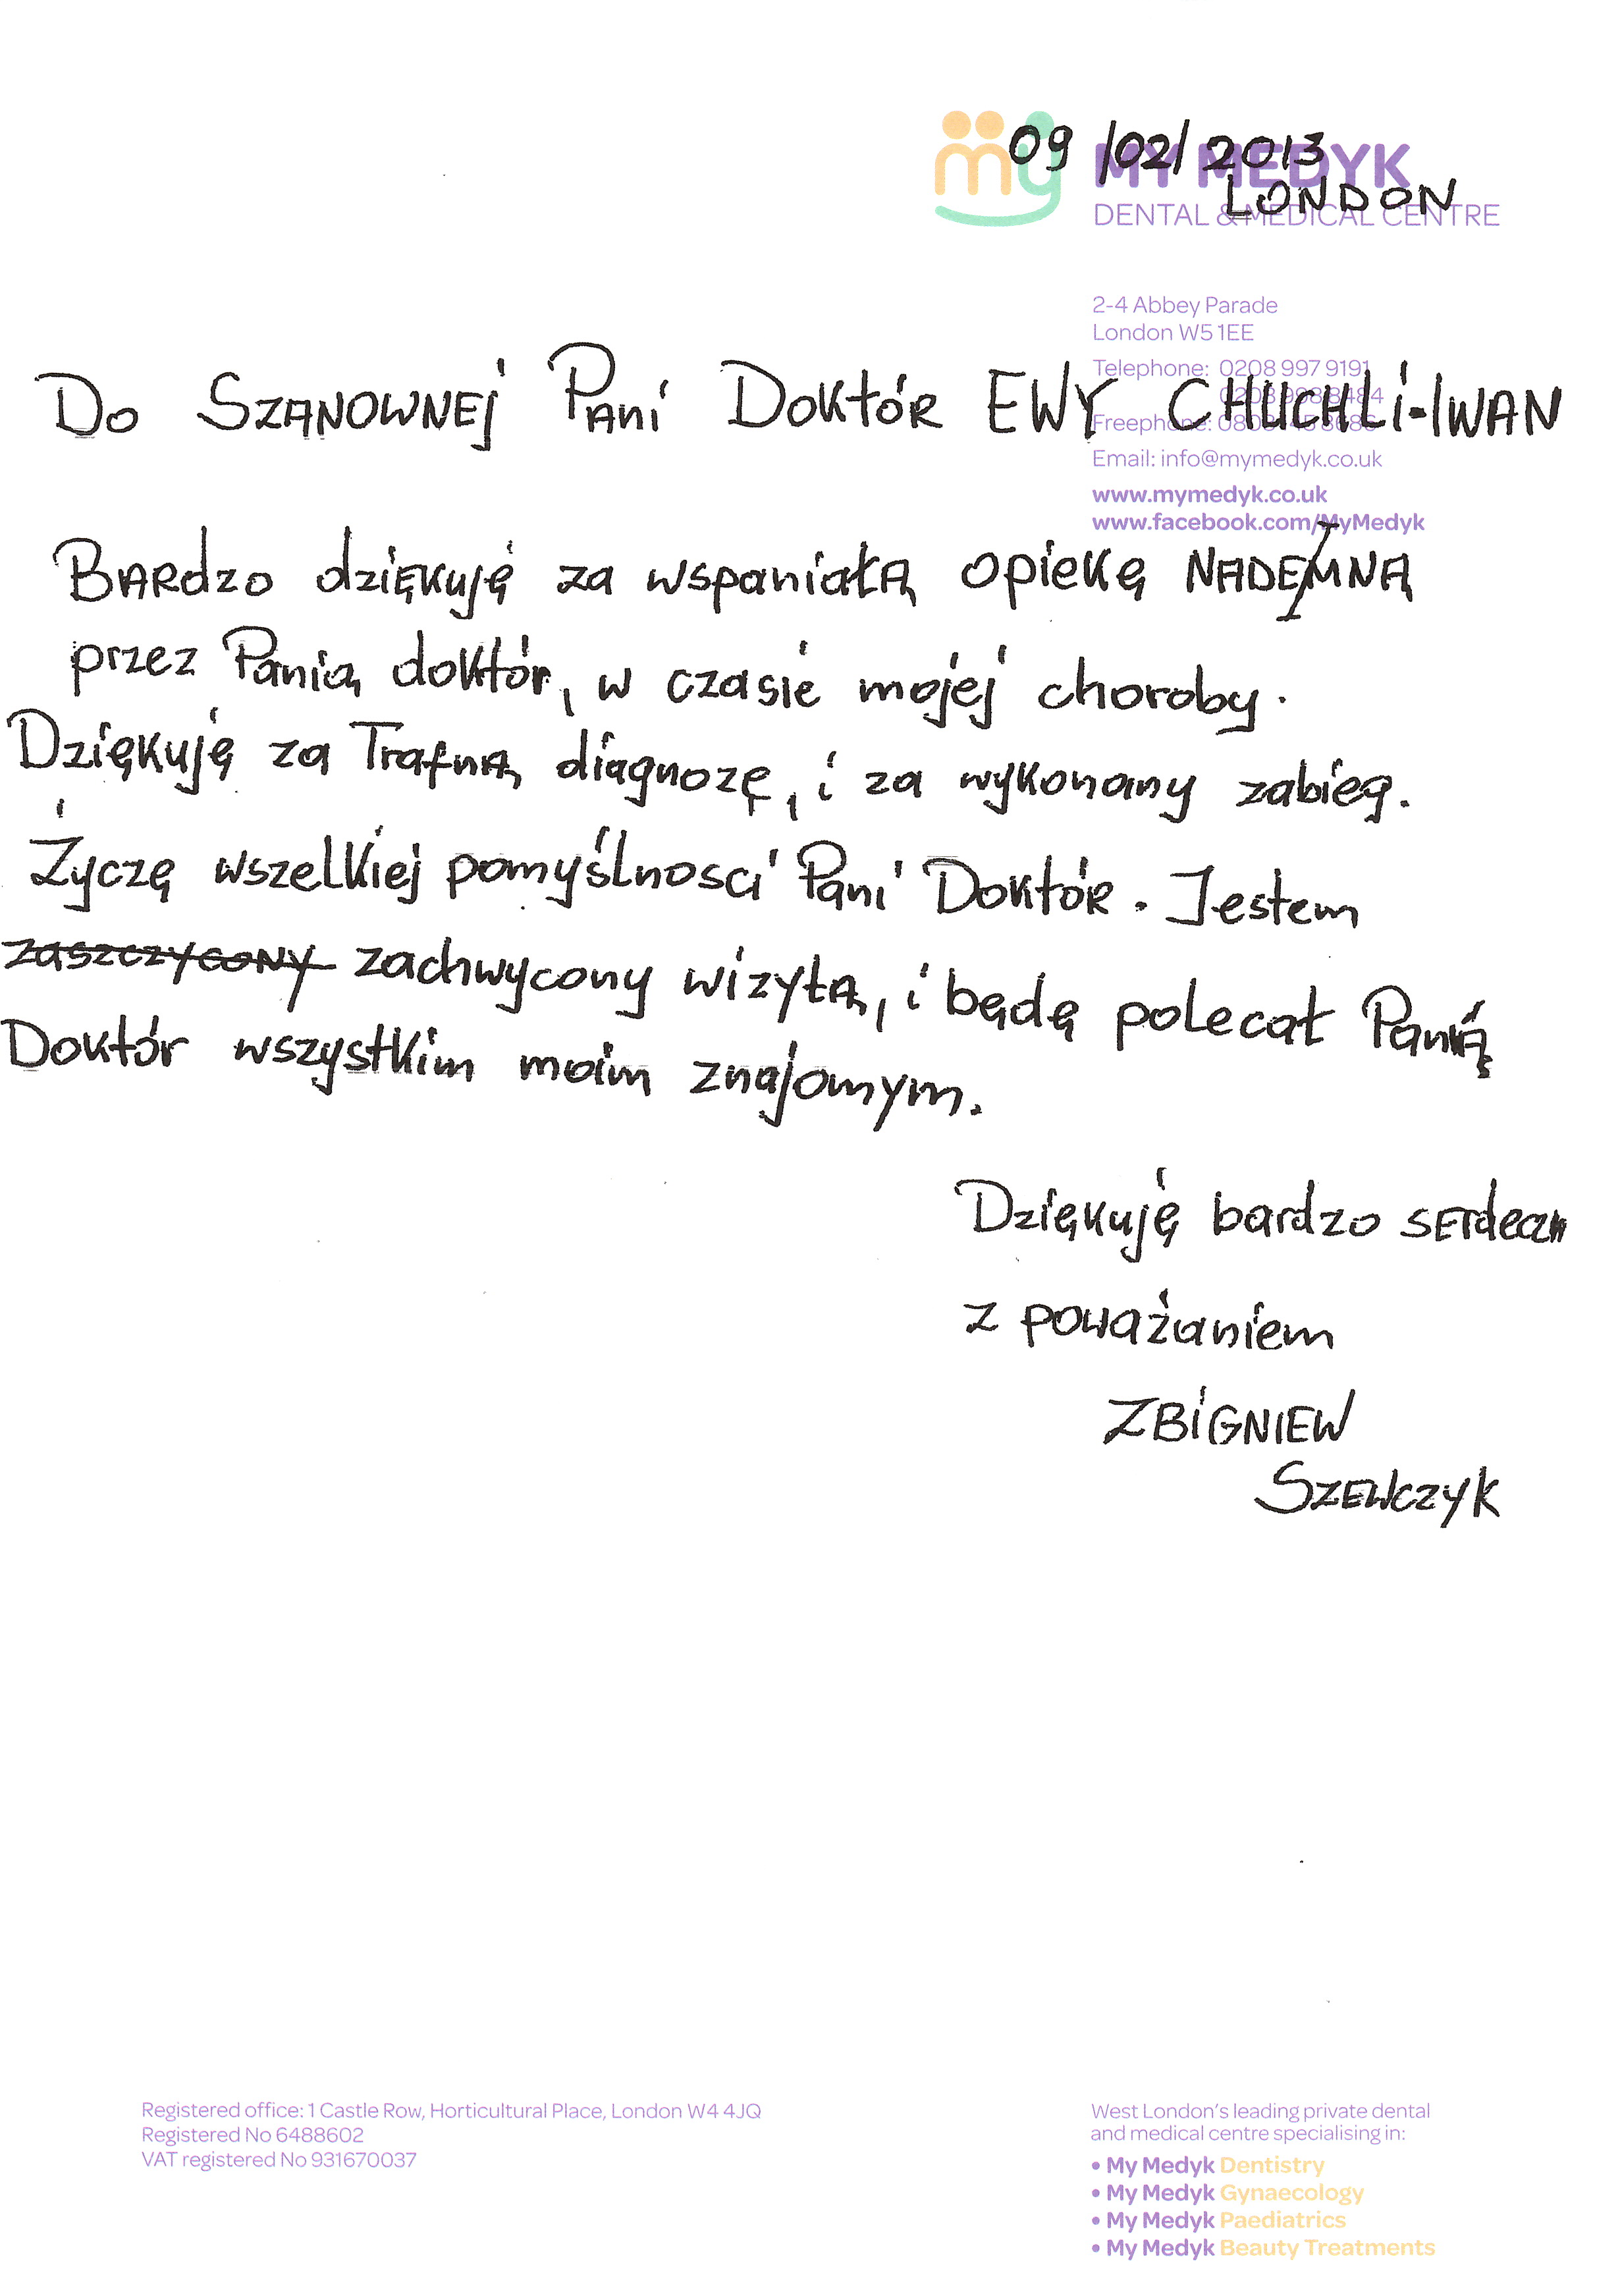 09/02/2013
my MY MEDYK
LONDON
DENTAL & MEDICAL CENTRE
2-4 Abbey Parade
London W5 1EE
Telephone: 0208 997 9191
Do SZANOWNEJ PANi DOKtóR EWY CHUCHLi-IWAN
Freephone:
Email: info@mymedyk.co.uk
www.mymedyk.co.uk
www.facebook.com/MyMedyk
BARdzo dziękuję za wspaniałą opiekę NADEMNĄ
przez Panią doktór, w czasie mojej choroby.
Dziękuję za Trafną diagnozę, i za wykonany zabieg.
Życzę wszelkiej pomyślnosci Pani DoktóR. Jestem
zaszczycony zachwycony wizytą, i będę polecał Panią
Doktór wszystkim moim znajomym.
Dziękuję bardzo sErdeczn
z poważaniem
ZBiGNIEW
SZEWCZYK
Registered office: 1 Castle Row, Horticultural Place, London W4 4JQ
Registered No 6488602
VAT registered No 931670037
West London's leading private dental
and medical centre specialising in:
• My Medyk Dentistry
• My Medyk Gynaecology
• My Medyk Paediatrics
• My Medyk Beauty Treatments